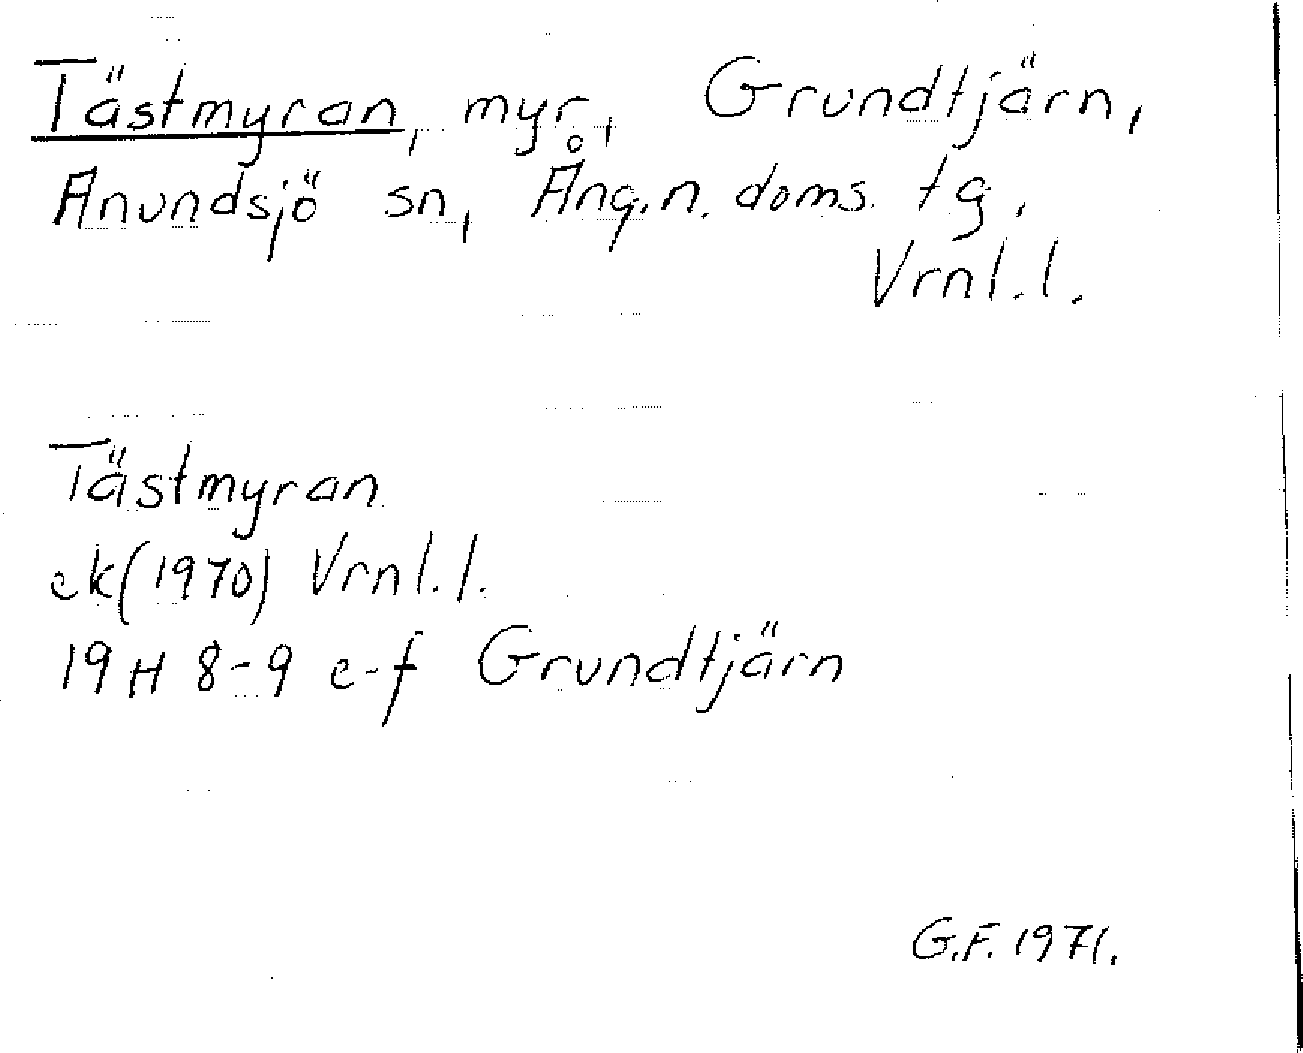 Tästmyran, myr, Grundtjärn,
Anundsjö sn, Ång.n. doms. tg.
Vrnl.l.
Tästmyran
ek(1970) Vrnl.l.
19 H 8-9 e-f Grundtjärn
G.F. 1971.